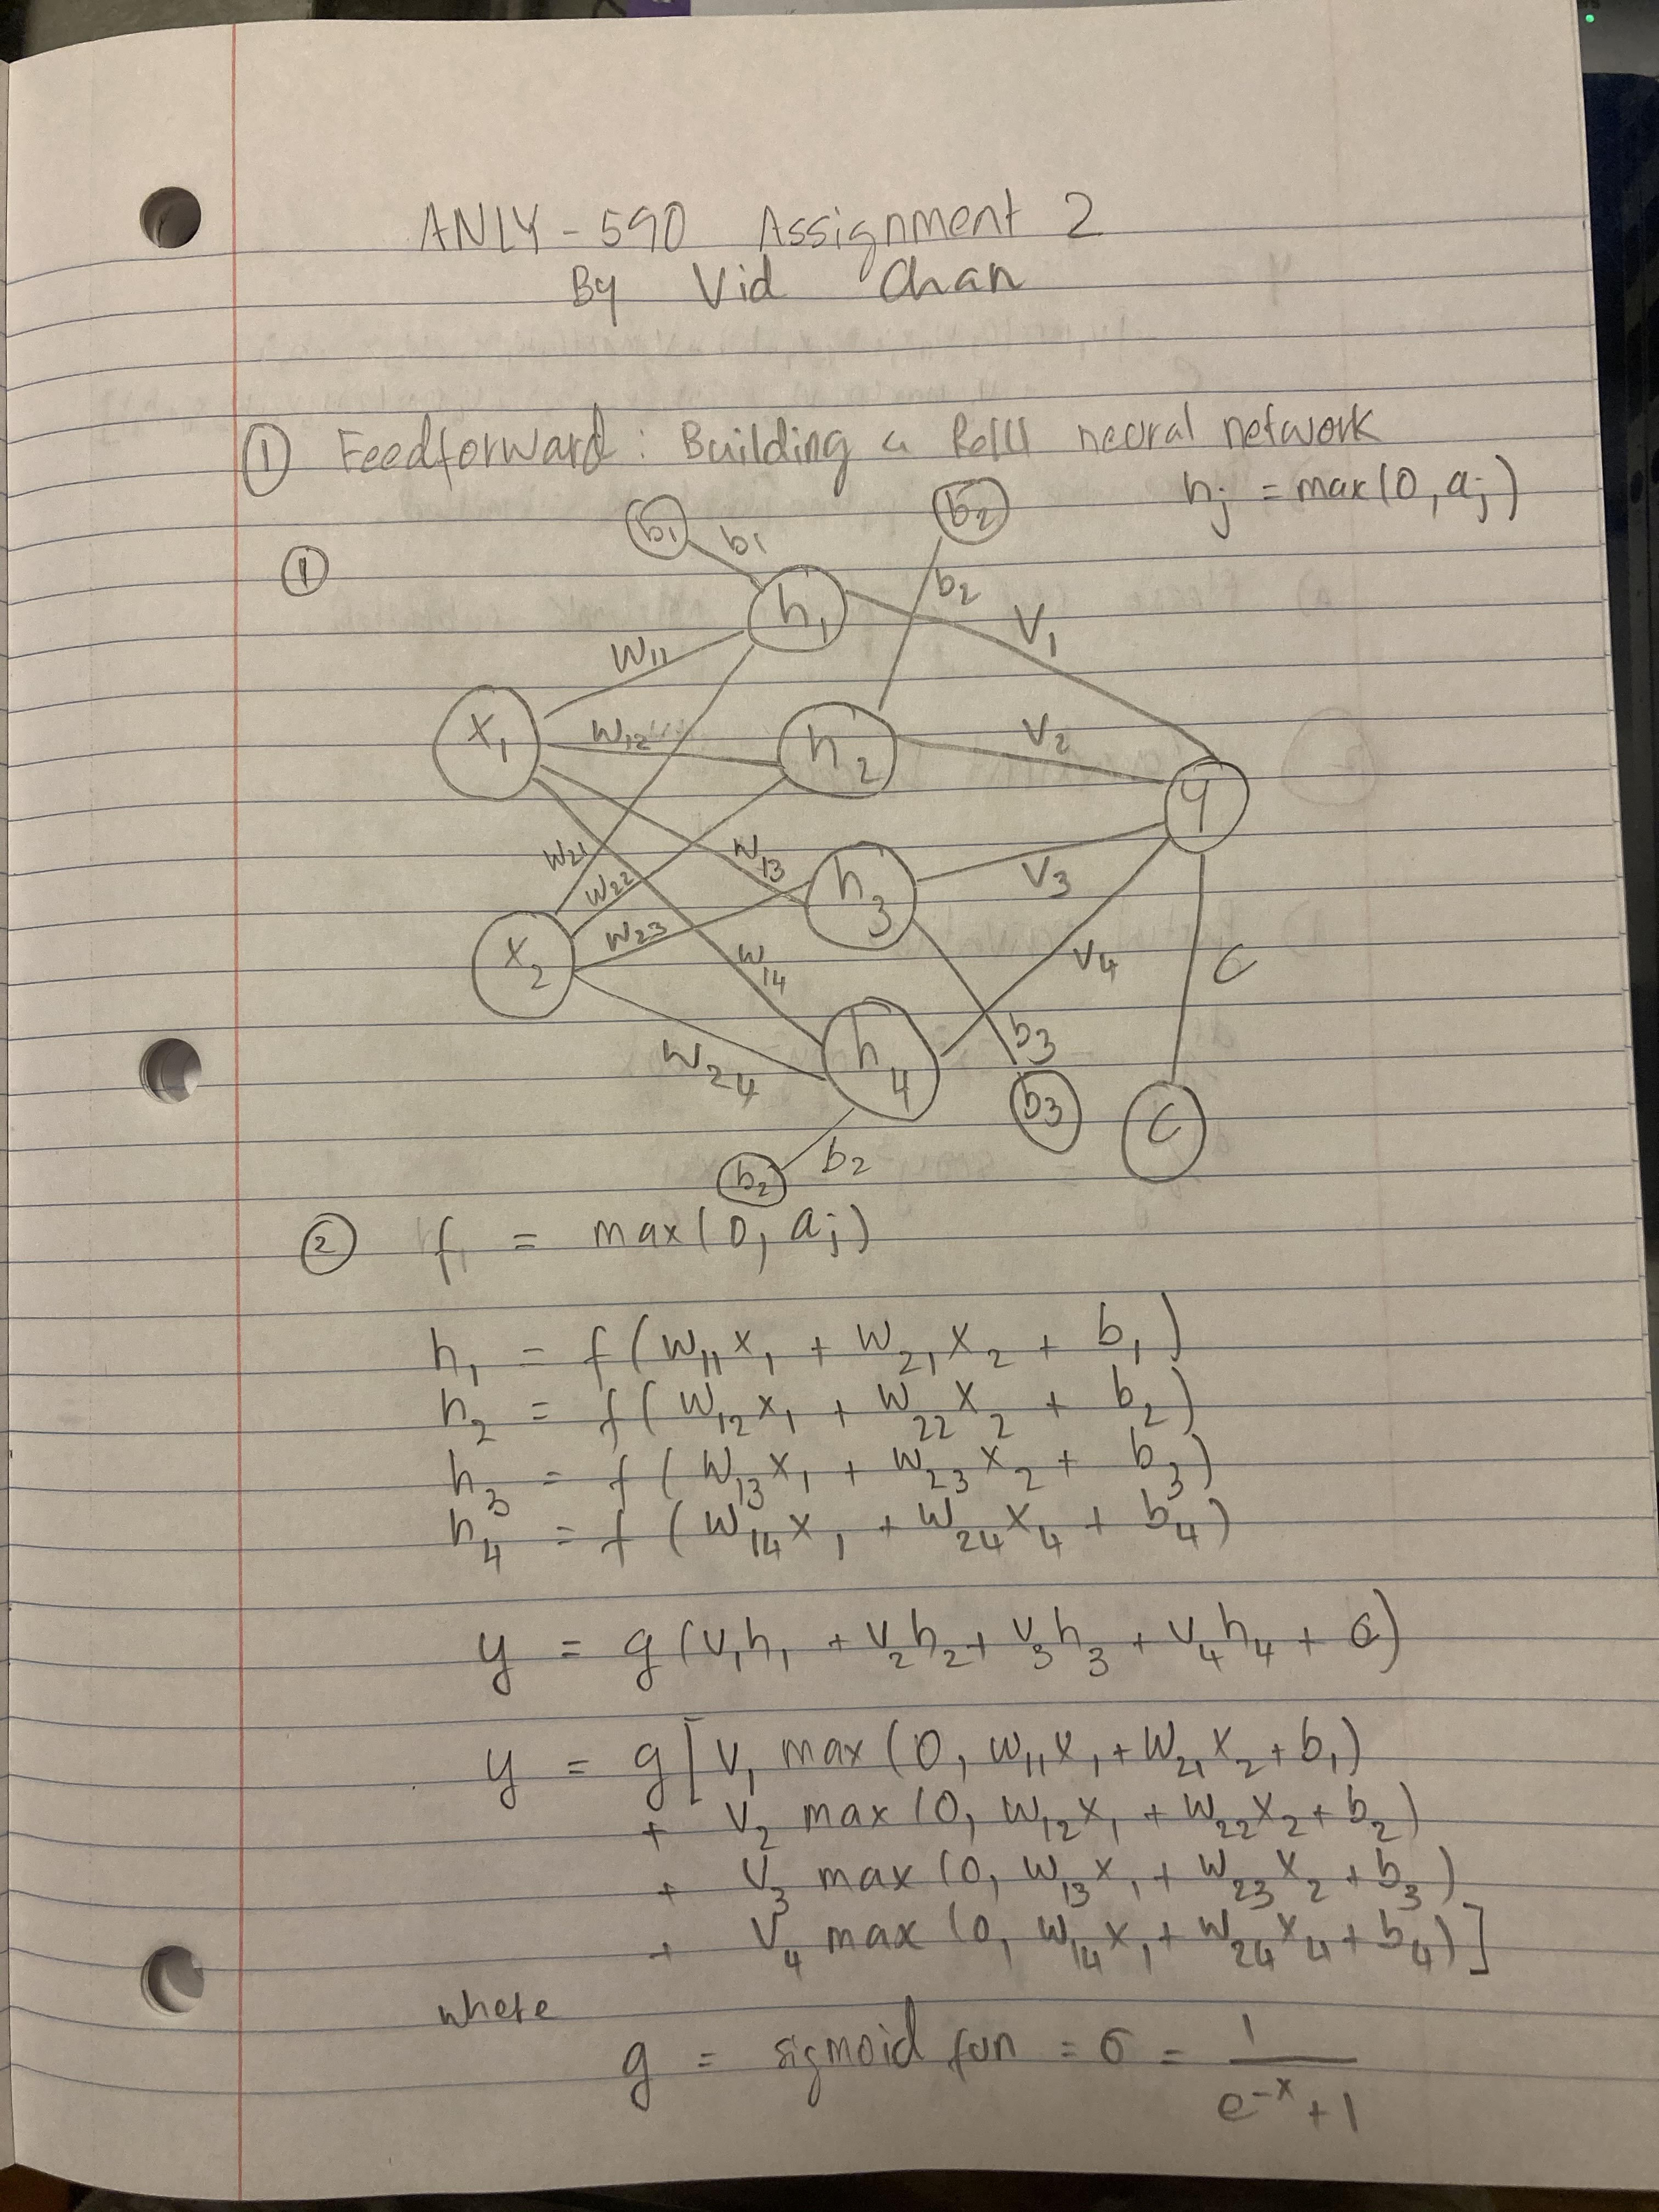 ANLY-590 Assignment 2
By Vid Chan
① Feedforward: Building a ReLU neural network
hj = max(0, aj)
①
b1 b1 b2
h1 b2 V1
W11
x1 W12 h2 V2
y
W21 W22 W13 h3 V3
x2 W23 W14 V4 C
h4 b3
W24 b3 C
b2 b2
② f = max(0, aj)
h1 = f(W11x1 + W21x2 + b1)
h2 = f(W12x1 + W22x2 + b2)
h3 = f(W13x1 + W23x2 + b3)
h4 = f(W14x1 + W24x4 + b4)
y = g(V1h1 + V2h2 + V3h3 + V4h4 + C)
y = g[V1 max(0, W11x1 + W21x2 + b1)
+ V2 max(0, W12x1 + W22x2 + b2)
+ V3 max(0, W13x1 + W23x2 + b3)
+ V4 max(0, W14x1 + W24x4 + b4)]
where
g = sigmoid fun = σ = 1
e^-x + 1